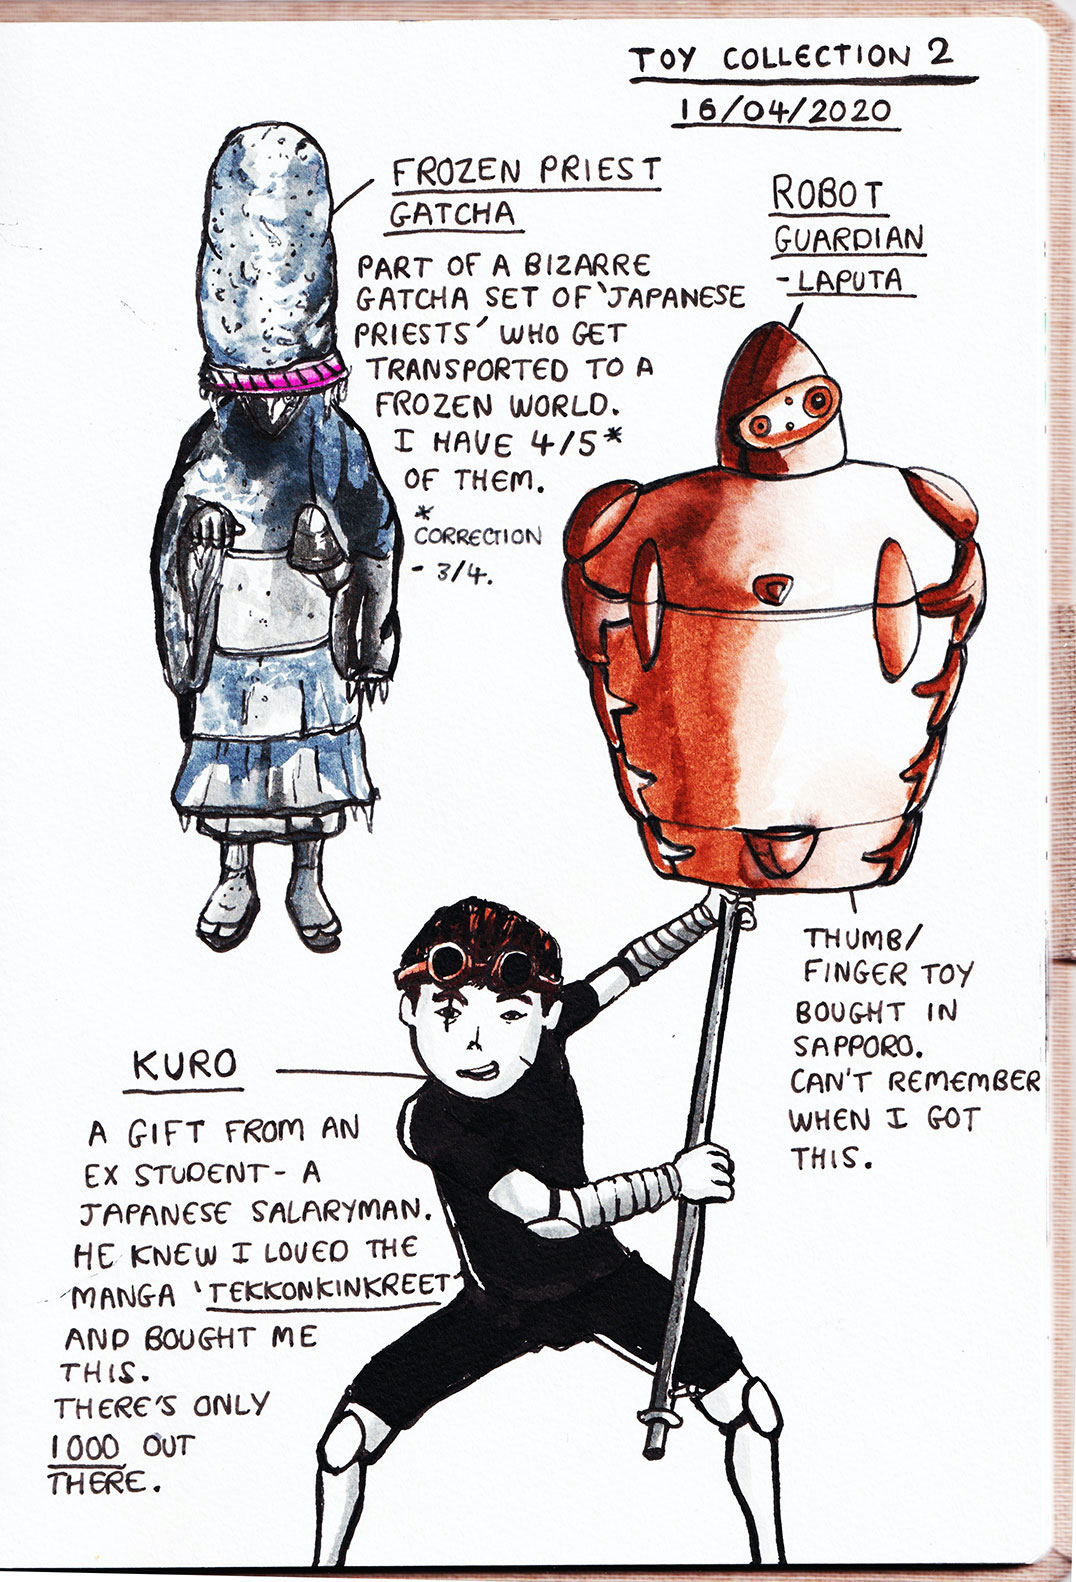 TOY COLLECTION 2
16/04/2020
FROZEN PRIEST
GATCHA
PART OF A BIZARRE
GATCHA SET OF 'JAPANESE
PRIESTS' WHO GET
TRANSPORTED TO A
FROZEN WORLD.
I HAVE 4/5*
OF THEM.
*
CORRECTION
- 3/4.
ROBOT
GUARDIAN
- LAPUTA
THUMB/
FINGER TOY
BOUGHT IN
SAPPORO.
CAN'T REMEMBER
WHEN I GOT
THIS.
KURO
A GIFT FROM AN
EX STUDENT - A
JAPANESE SALARYMAN.
HE KNEW I LOVED THE
MANGA 'TEKKONKINKREET'
AND BOUGHT ME
THIS.
THERE'S ONLY
1000 OUT
THERE.